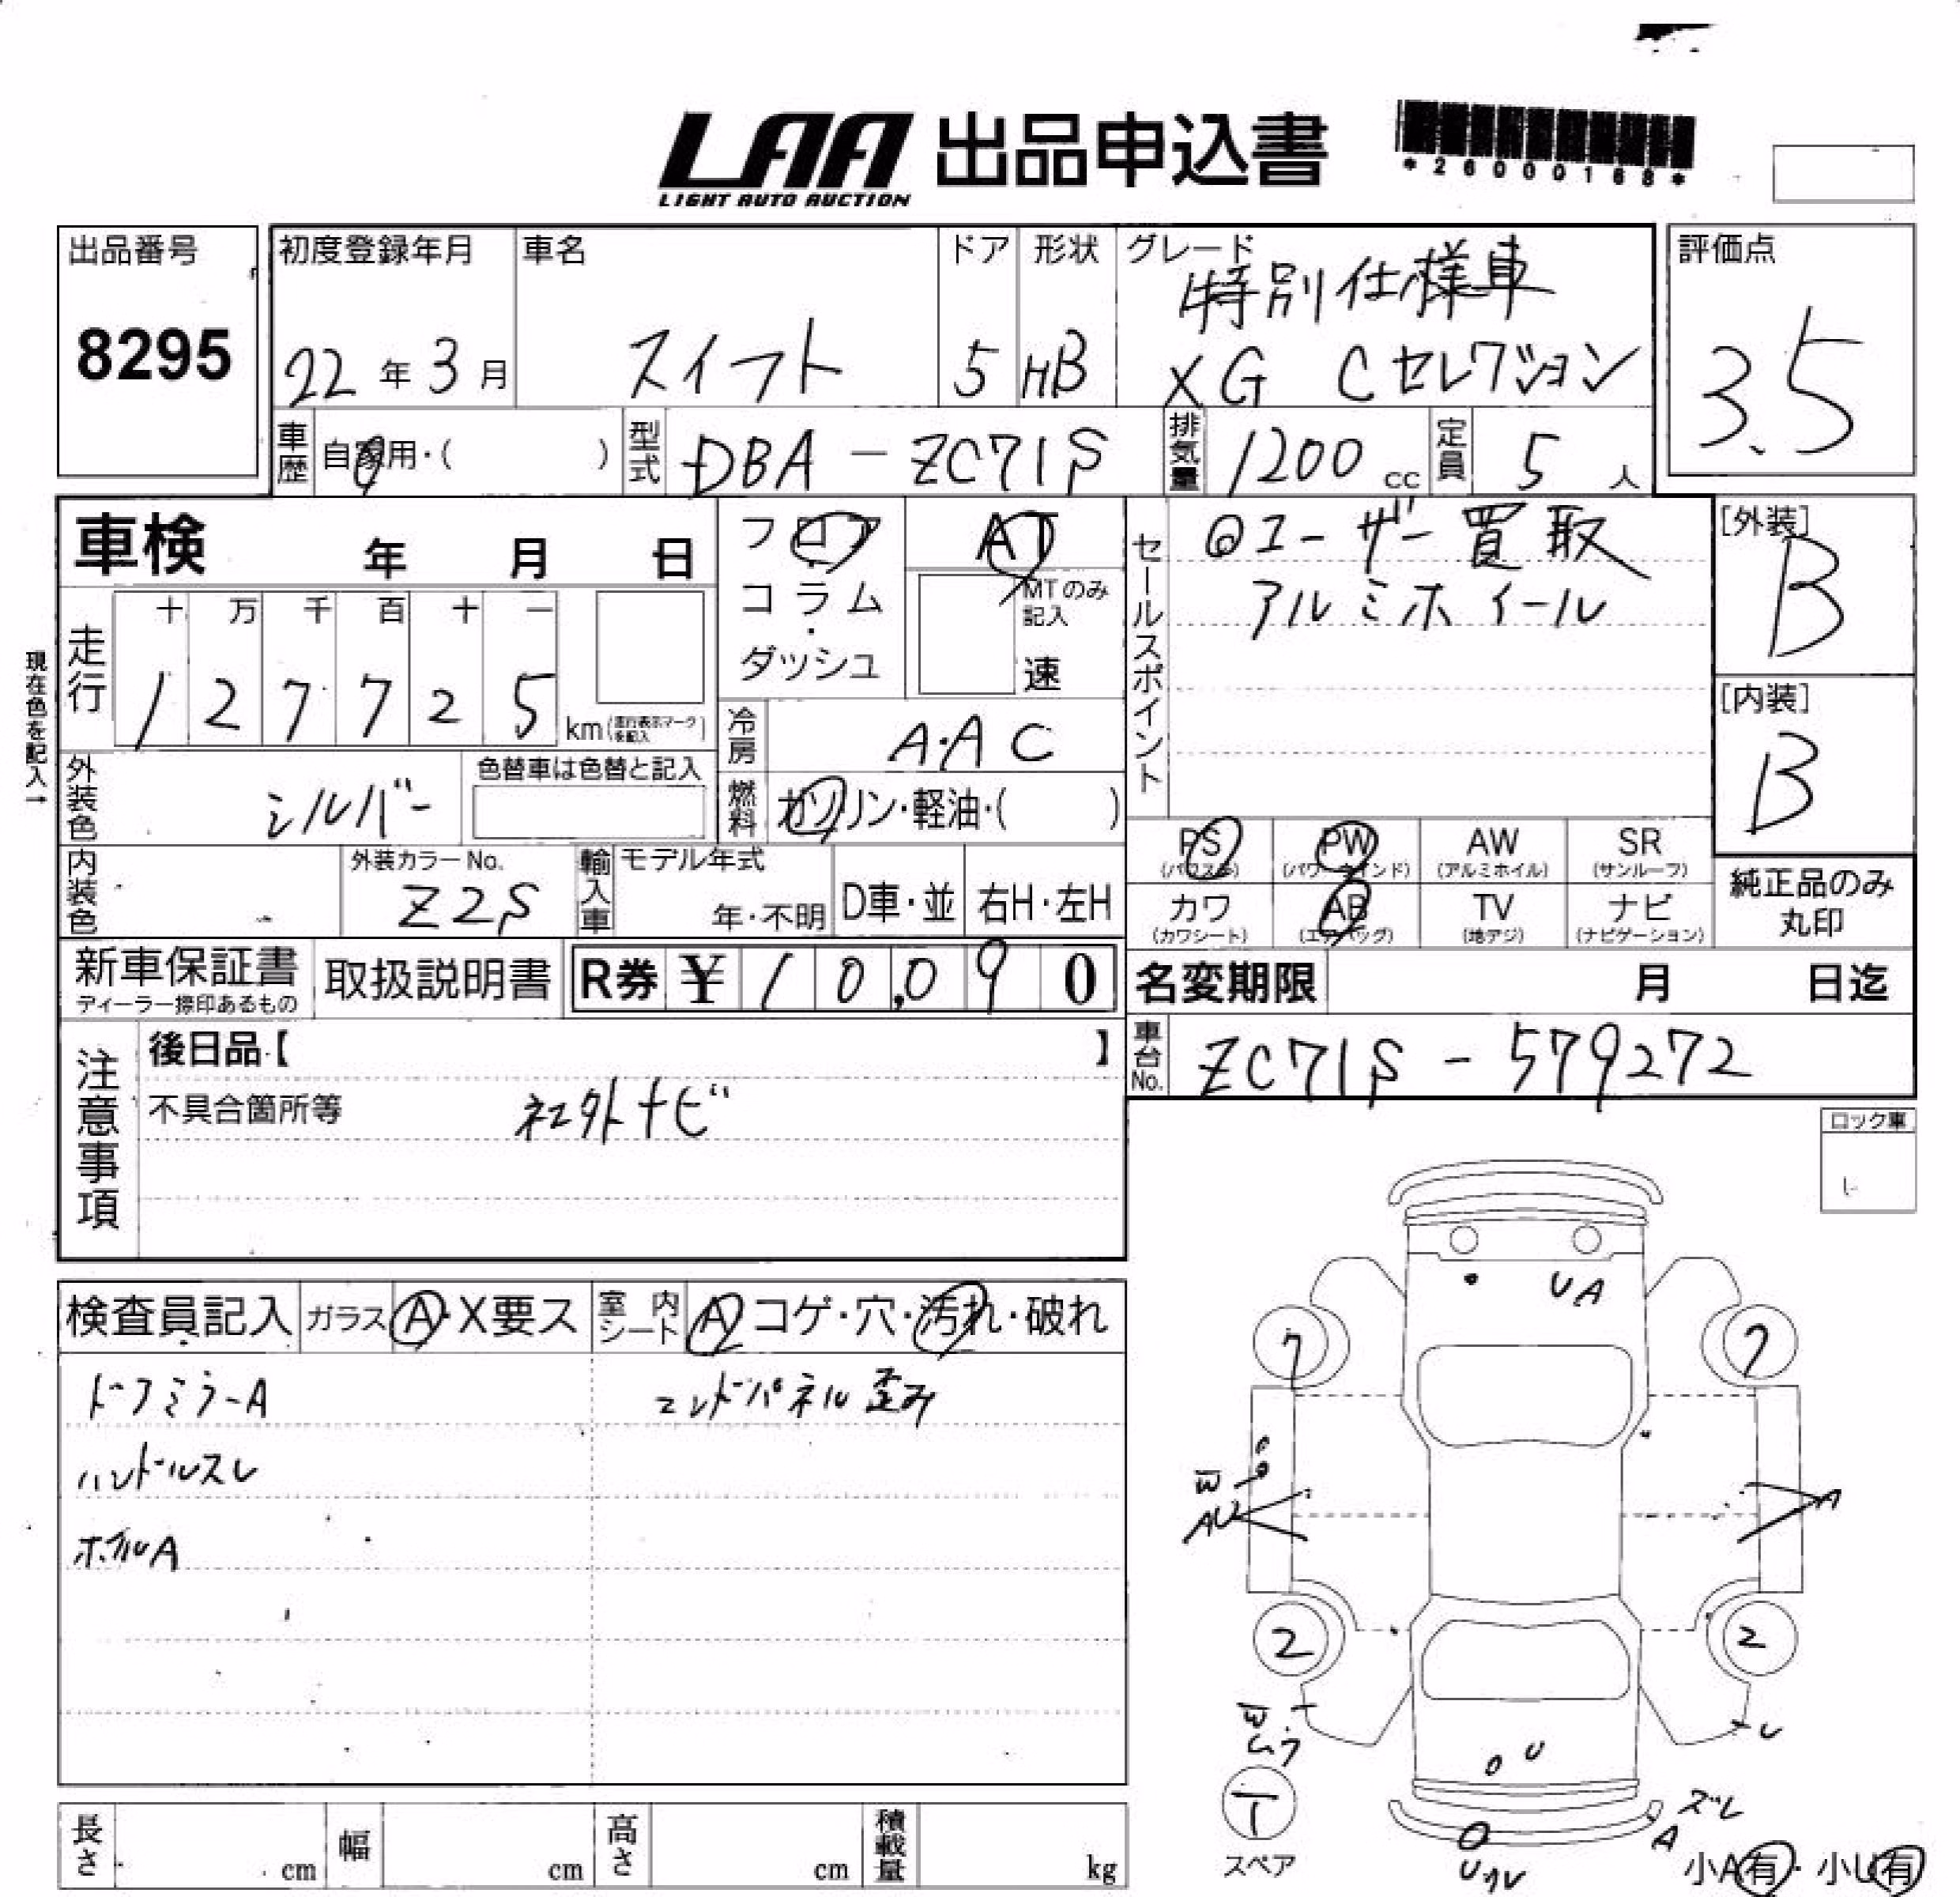 LAA 出品申込書
LIGHT AUTO AUCTION
*26000168*
出品番号
8295
初度登録年月
22年3月
車名
スイフト
ドア
5
形状
HB
グレード
特別仕様車
XG Cセレクション
評価点
3.5
車歴 自家用・( )
型式 DBA-ZC71S
排気量 1200cc
定員 5人
車検 年 月 日
フロア・コラム・ダッシュ
AT
MTのみ記入
速
セールスポイント
◎ユーザー買取
アルミホイール
[外装]
B
[内装]
B
現在色を記入→
走行
十 万 千 百 十 一
1 2 7 7 2 5 km(走行表示マークを記入)
冷房 A・AC
外装色 シルバー
色替車は色替と記入
燃料 ガソリン・軽油・( )
PS (パワステ)
PW (パワーウインド)
AW (アルミホイル)
SR (サンルーフ)
カワ (カワシート)
AB (エアバッグ)
TV (地デジ)
ナビ (ナビゲーション)
純正品のみ
丸印
内装色
外装カラーNo.
Z2S
輸入車
モデル年式
年・不明
D車・並
右H・左H
新車保証書
ディーラー捺印あるもの
取扱説明書
R券 ¥10,090
名変期限 月 日迄
車台No. ZC71S-579272
注意事項
後日品【 】
不具合箇所等 社外ナビ
ロック車
検査員記入
ガラス A・X要ス
室内シート A コゲ・穴・汚れ・破れ
ドアミラーA
エンドパネル歪み
ハンドルスレ
ホイルA
U A
7
7
W
AU
A
2
2
W
ムラ
U
U
T
スペア
ズレ
A
小A有・小U有
長さ cm
幅 cm
高さ cm
積載量 kg